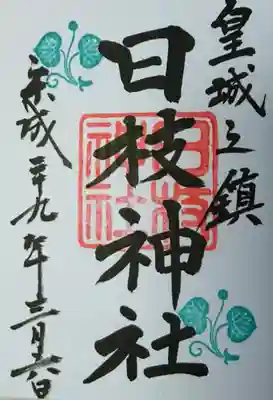 皇城之鎮
日枝神社
平成二十九年三月六日
日枝神社